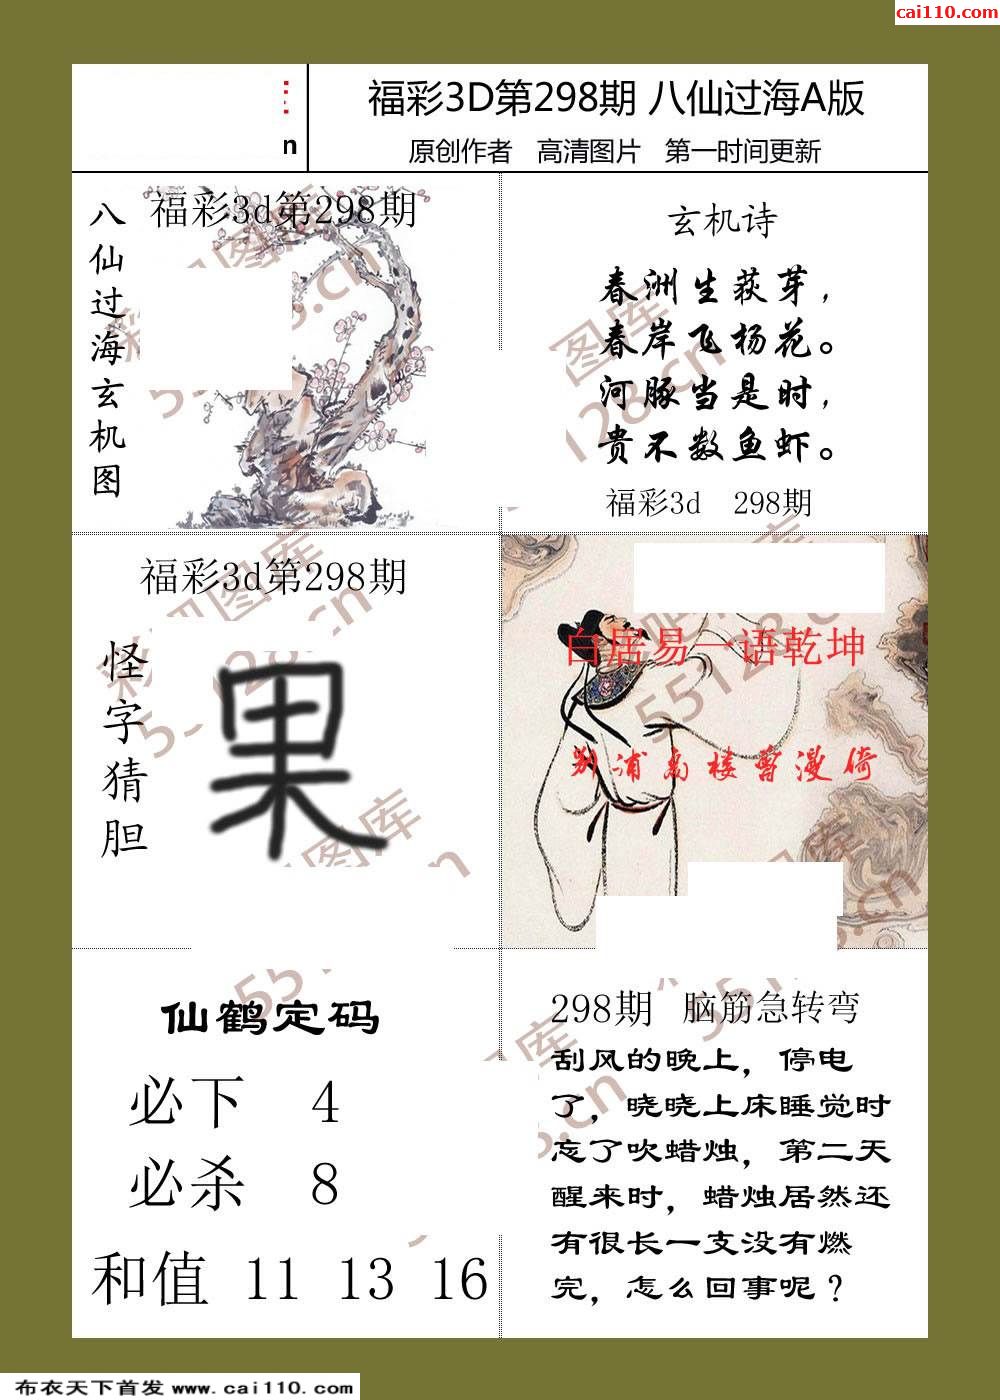 cai110.com
n
福彩3D第298期 八仙过海A版
原创作者 高清图片 第一时间更新
福彩3d第298期
八仙过海玄机图
玄机诗
春洲生荻芽，
春岸飞杨花。
河豚当是时，
贵不数鱼虾。
福彩3d 298期
福彩3d第298期
怪字猜胆
果
白居易一语乾坤
别浦高楼曾漫倚
仙鹤定码
必下 4
必杀 8
和值 11 13 16
298期 脑筋急转弯
刮风的晚上，停电
了，晓晓上床睡觉时
忘了吹蜡烛，第二天
醒来时，蜡烛居然还
有很长一支没有燃
完，怎么回事呢？
布衣天下首发 www.cai110.com